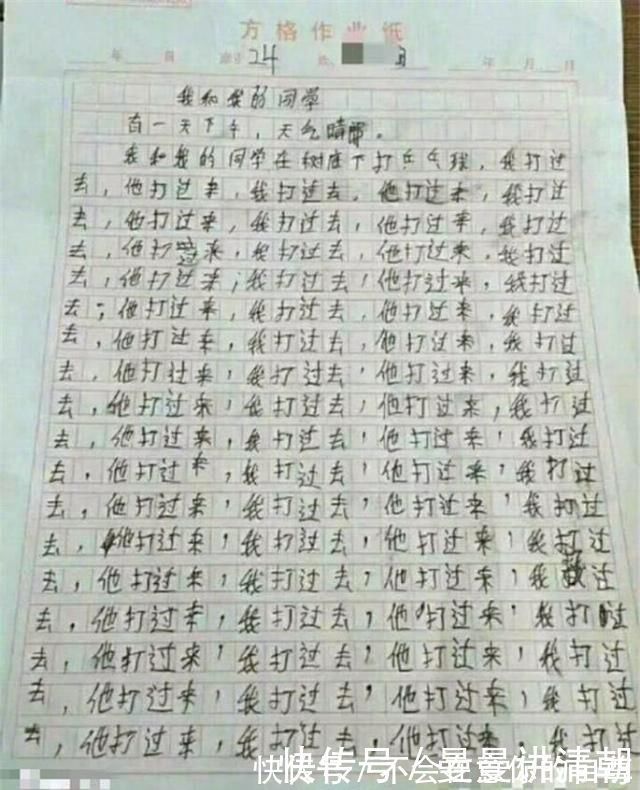 方格作业纸
年 月 24 年 月 日
我和我的同学
有一天下午，天气晴朗。
我和我的同学在树底下打乒乓球，我打过
去，他打过来，我打过去，他打过来，我打过
去，他打过来，我打过去，他打过来，我打过
去，他打过来，我打过去，他打过来，我打过
去，他打过来，我打过去，他打过来，我打过
去，他打过来，我打过去，他打过来，我打过
去，他打过来，我打过去，他打过来，我打过
去，他打过来，我打过去，他打过来，我打过
去，他打过来，我打过去，他打过来，我打过
去，他打过来，我打过去，他打过来，我打过
去，他打过来，我打过去，他打过来，我打过
去，他打过来，我打过去，他打过来，我打过
去，他打过来，我打过去，他打过来，我打过
去，他打过来，我打过去，他打过来，我过
去，他打过来，我打过去，他打过来，我打过
去，他打过来，我打过去，他打过来，我打过
去，他打过来，我打过去，他打过来，我打过
去，他打过来，我打过去，他打过来，我打过
快传号/曼曼讲清朝